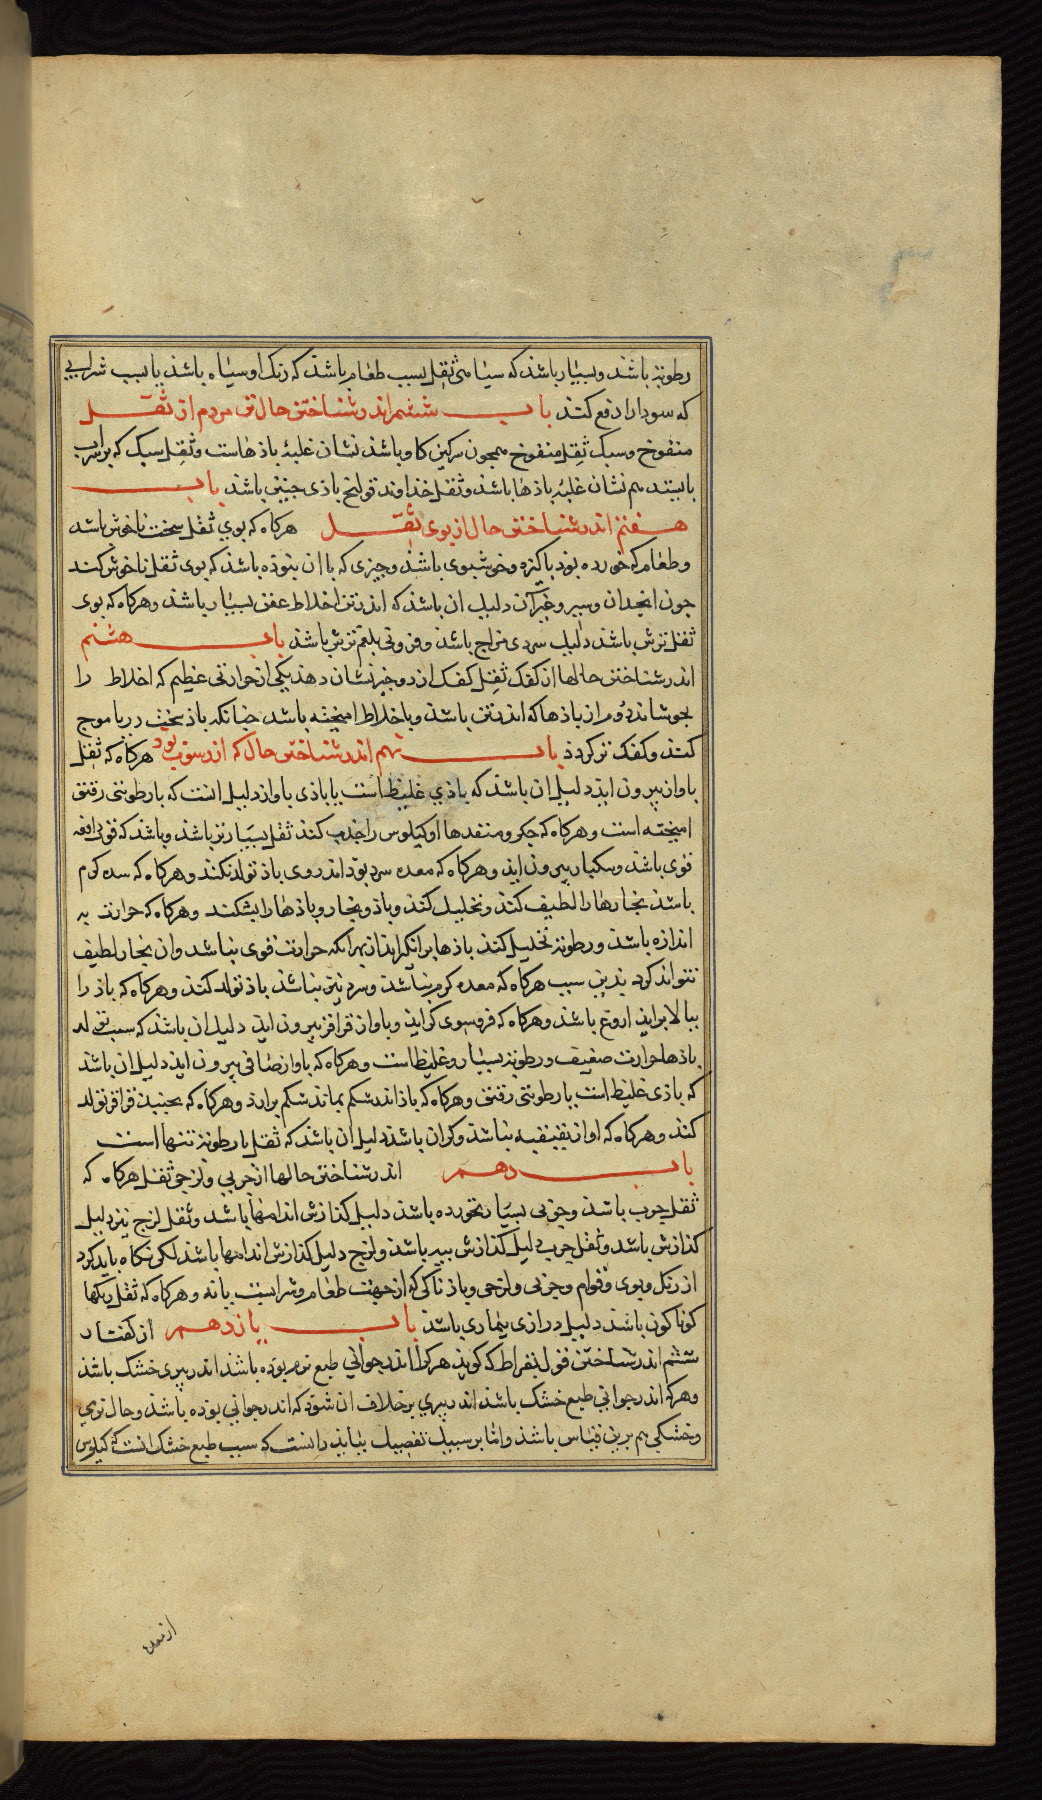 رطوبة باشد و بسیار باشد که سیاهی ثقل بسبب طعام باشد که رنک او سیاه باشد یا بسبب شرابی
که سودا را دفع کند باب ششم اندر شناختن حال تن مردم از ثقل
منفوخ و سبک ثقل منفوخ همچون سرکین کاو باشد نشان غلبهٔ باذهاست و ثقل سبک که بر سر اب
بایستد هم نشان غلبهٔ باذها باشد و ثقل خداوند قولنج باذی جنین باشد باب
هفتم اندر شناختن حال از بوی ثقل هرکاه که بوی ثقل سخت ناخوش باشد
و طعام که خورده بود باکیزه و خوشبوی باشد و جیزی که با ان بنوده باشد که بوی ثقل ناخوش کند
جون انجدان و سیر و غیر آن دلیل ان باشد که اندر تن اخلاط عفن بسیار باشد و هرکاه که بوی
ثقل ترش باشد دلیل سردی مزاج باشد و فزونی بلغم ترش باشد باب هشتم
اندر شناختن حالها از کفک ثقل کفک از دو جیز نشان دهد یکی از حرارتی عظیم که اخلاط را
بجوشاند دوم از باذها که اندر تن باشد و با خلاط امیخته باشد جنانکه باذ سخت دریا موج
کند و کفک تر کردد باب نهم اندر شناختن حال که از صوت بود هرکاه که ثقل
با واز بیرون اید دلیل ان باشد که باذی غلیظ است یا باذی با واز دلیل است که با رطوبتی رقیق
امیخته است و هرکاه که جکر و منفدها او کیلوس را جذب کند ثقل بسیار تر باشد و باشد که قوت دافعه
قوی باشد و سکبار بیرون اید و هرکاه که معده سرد بود اندر وی باذ تولد نکند و هرکاه که معده کرم
باشد بخارها را لطیف کند و تحلیل کند و باذ و بخار و باذها را بشکند و هرکاه که حرارت به
اندازه باشد و رطوبة تحلیل کند باذها برانکیزاند از بهر انکه حرارت قوی نباشد و ان بخار لطیف
نتواند کرد بدین سبب هرکاه که معده کرم نباشد و سرد نیز نباشد باذ تولد کند و هرکاه که باذ را
ببالا براید اروغ باشد و هرکاه که فروسوی کراید و با واز قراقر بیرون اید دلیل ان باشد که سبب تولد
باذها حرارت ضعیف و رطوبة بسیار و غلیظ است و هرکاه که با واز صافی بیرون اید دلیل ان باشد
که باذی غلیظ است با رطوبتی رقیق و هرکاه که باذ اندر شکم بماند شکم برارد و هرکاه که بجنبد قراقر تولد
کند و هرکاه که اواز بقبقبه نباشد و کران باشد دلیل ان باشد که ثقل با رطوبة تنها است
باب دهم اندر شناختن حالها از جربی و لزجی ثقل هرکاه که
ثقل جرب باشد و جربی بسیار نخورده باشد دلیل کدازش اندامها باشد و ثقل لزج نیز دلیل
کدازش باشد و ثقل جرب دلیل کدازش بیه باشد و لزج دلیل کدازش اندامها باشد لکن نکاه باید کرد
از رنک و بوی و قوام و جربی و لزجی و باذ ناکی که از جهت طعام و شرابست یا نه و هرکاه که ثقل رنکها
کوناکون باشد دلیل درازی بیماری باشد باب یازدهم از کفتار
ششم اندر شناختن قول بقراط که کوید هرکرا اندر جوانی طبع نرم بوده باشد اندر پیری خشک باشد
و هرکه اندر جوانی طبع خشک باشد اندر پیری بر خلاف ان شود که اندر جوانی بوده باشد و حال تری
و خشکی هم برین قیاس باشد و اما بر سبیل تفصیل بباید دانست که سبب طبع خشک انست که کیلوس
از معده